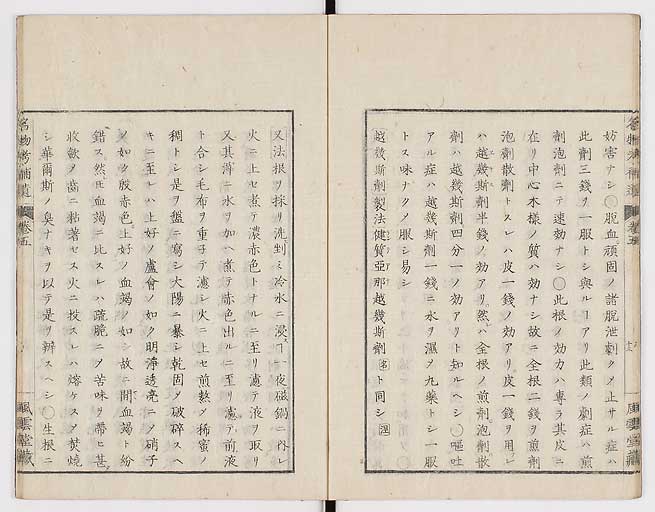 妨害ナシ〇脱血頑固ノ諸脱泄劇クメ止サル症ハ
此劑三錢ヲ一服トシ與ルアリ此類ノ劇症ハ煎
劑泡劑ニテ速効ナシ〇此根ノ効力ハ專ラ其皮ニ
在リ中心木様ノ質ハ効ナシ故ニ全根二錢ヲ煎劑
泡劑散劑トスレハ皮一錢ノ効アリ皮一錢ヲ用レ
ハ越幾斯劑半錢ノ効アリ然ハ全根ノ煎劑泡劑散
劑ハ越幾斯劑四分一ノ効アリト知ルヘシ〇嘔吐
アル症ハ越幾斯劑一錢ニ水ヲ濕ヲ丸藥トシ一服
トス味ナクメ服シ易シ
越幾斯劑製法健質亞那越幾斯劑名ト同シ
又法根ヲ採リ洗剉ミ冷水ニ浸ス一夜磁鍋ニ内レ
火ニ上セ煮テ濃赤色トナルニ至リ濾テ液ヲ取リ
又其滓ニ水ヲ加ヘ煮テ赤色出ルニ至リ濾テ前液
ト合シ毛布ヲ重子テ濾シ火ニ上セ煎熬メ稀蜜ノ
稠トシ是ヲ盤ニ寫シ大陽ニ暴シ乾固メ破碎スヘ
キニ至レハ上好ノ盧會ノ如ク明淨透亮ニメ硝子
ノ如ク殷赤色上好ノ血竭ノ如シ故ニ間血竭ト紛
錯ス然圧血竭ニ比スレハ疏脆ニメ苦味ヲ帶ヒ甚
收歛ヲ齒ニ粘著セス火ニ投スレハ熔ケスメ焚燒
シ華爾斯ノ臭ナキヲ以テ是ヲ辨スヘシ〇生根ニ
名物考補遺 卷五 風雲堂藏